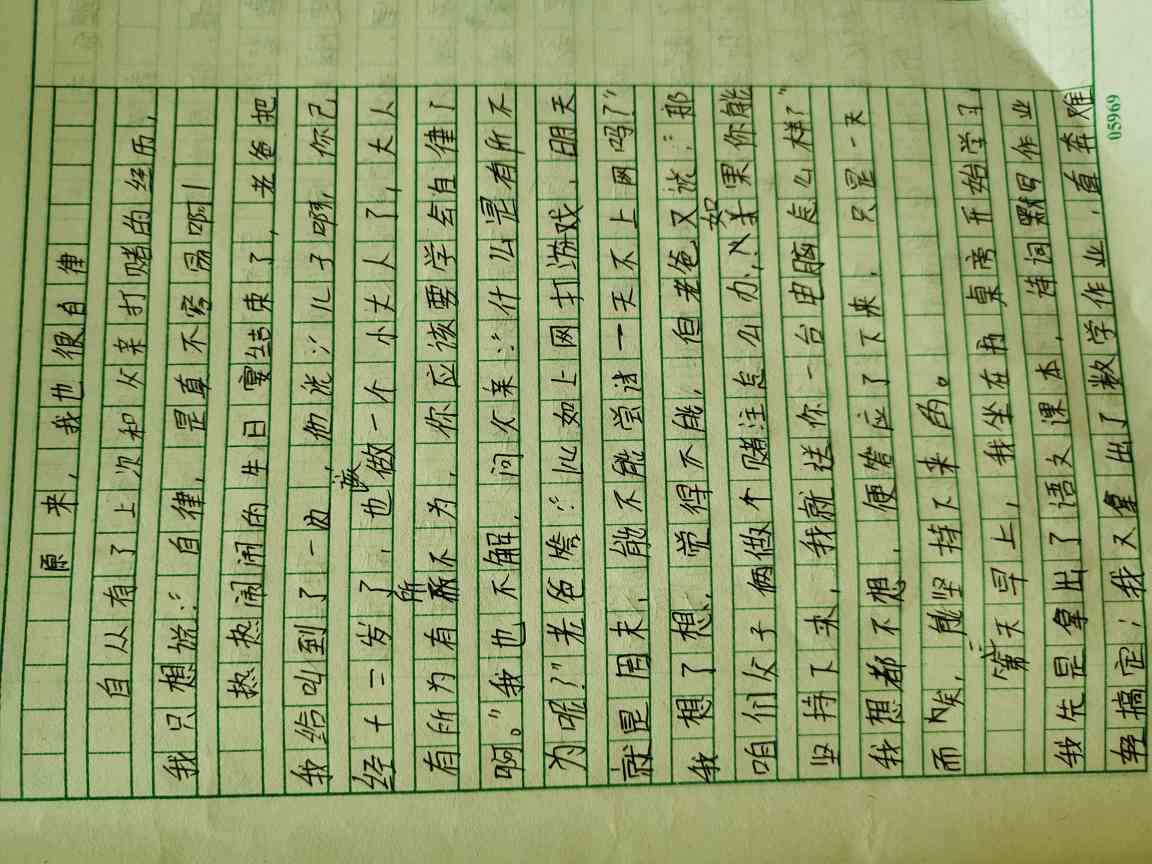 原来，我也很自律
自从有了上次和父亲打赌的经历，
我只想说：“自律，是真不容易啊！
热热闹闹的生日宴结束了，老爸把
我给叫到了一边，他说：“儿子啊，你已
经十二岁了，也该做一个小大人了，大人
有所为有所不为，你应该要学会自律了
啊。”我也不解，问父亲：“什么是有所不
为呢？”老爸答：“比如上网打游戏，明天
就是周末，能不能尝试一天不上网吗？”
我想了想，觉得不能，但老爸又说：“那
咱们父子俩做个赌注怎么办，如果你能
坚持下来，我就送你一台电脑怎么样？”
我想都不想，便答应了下来，只是一天
而矣，能坚持下来的。
第二天早上，我坐在书桌旁开始学习，
我先是拿出了语文课本，诗词默写作业
轻搞定；我又拿出了数学作业，直奔难
05969